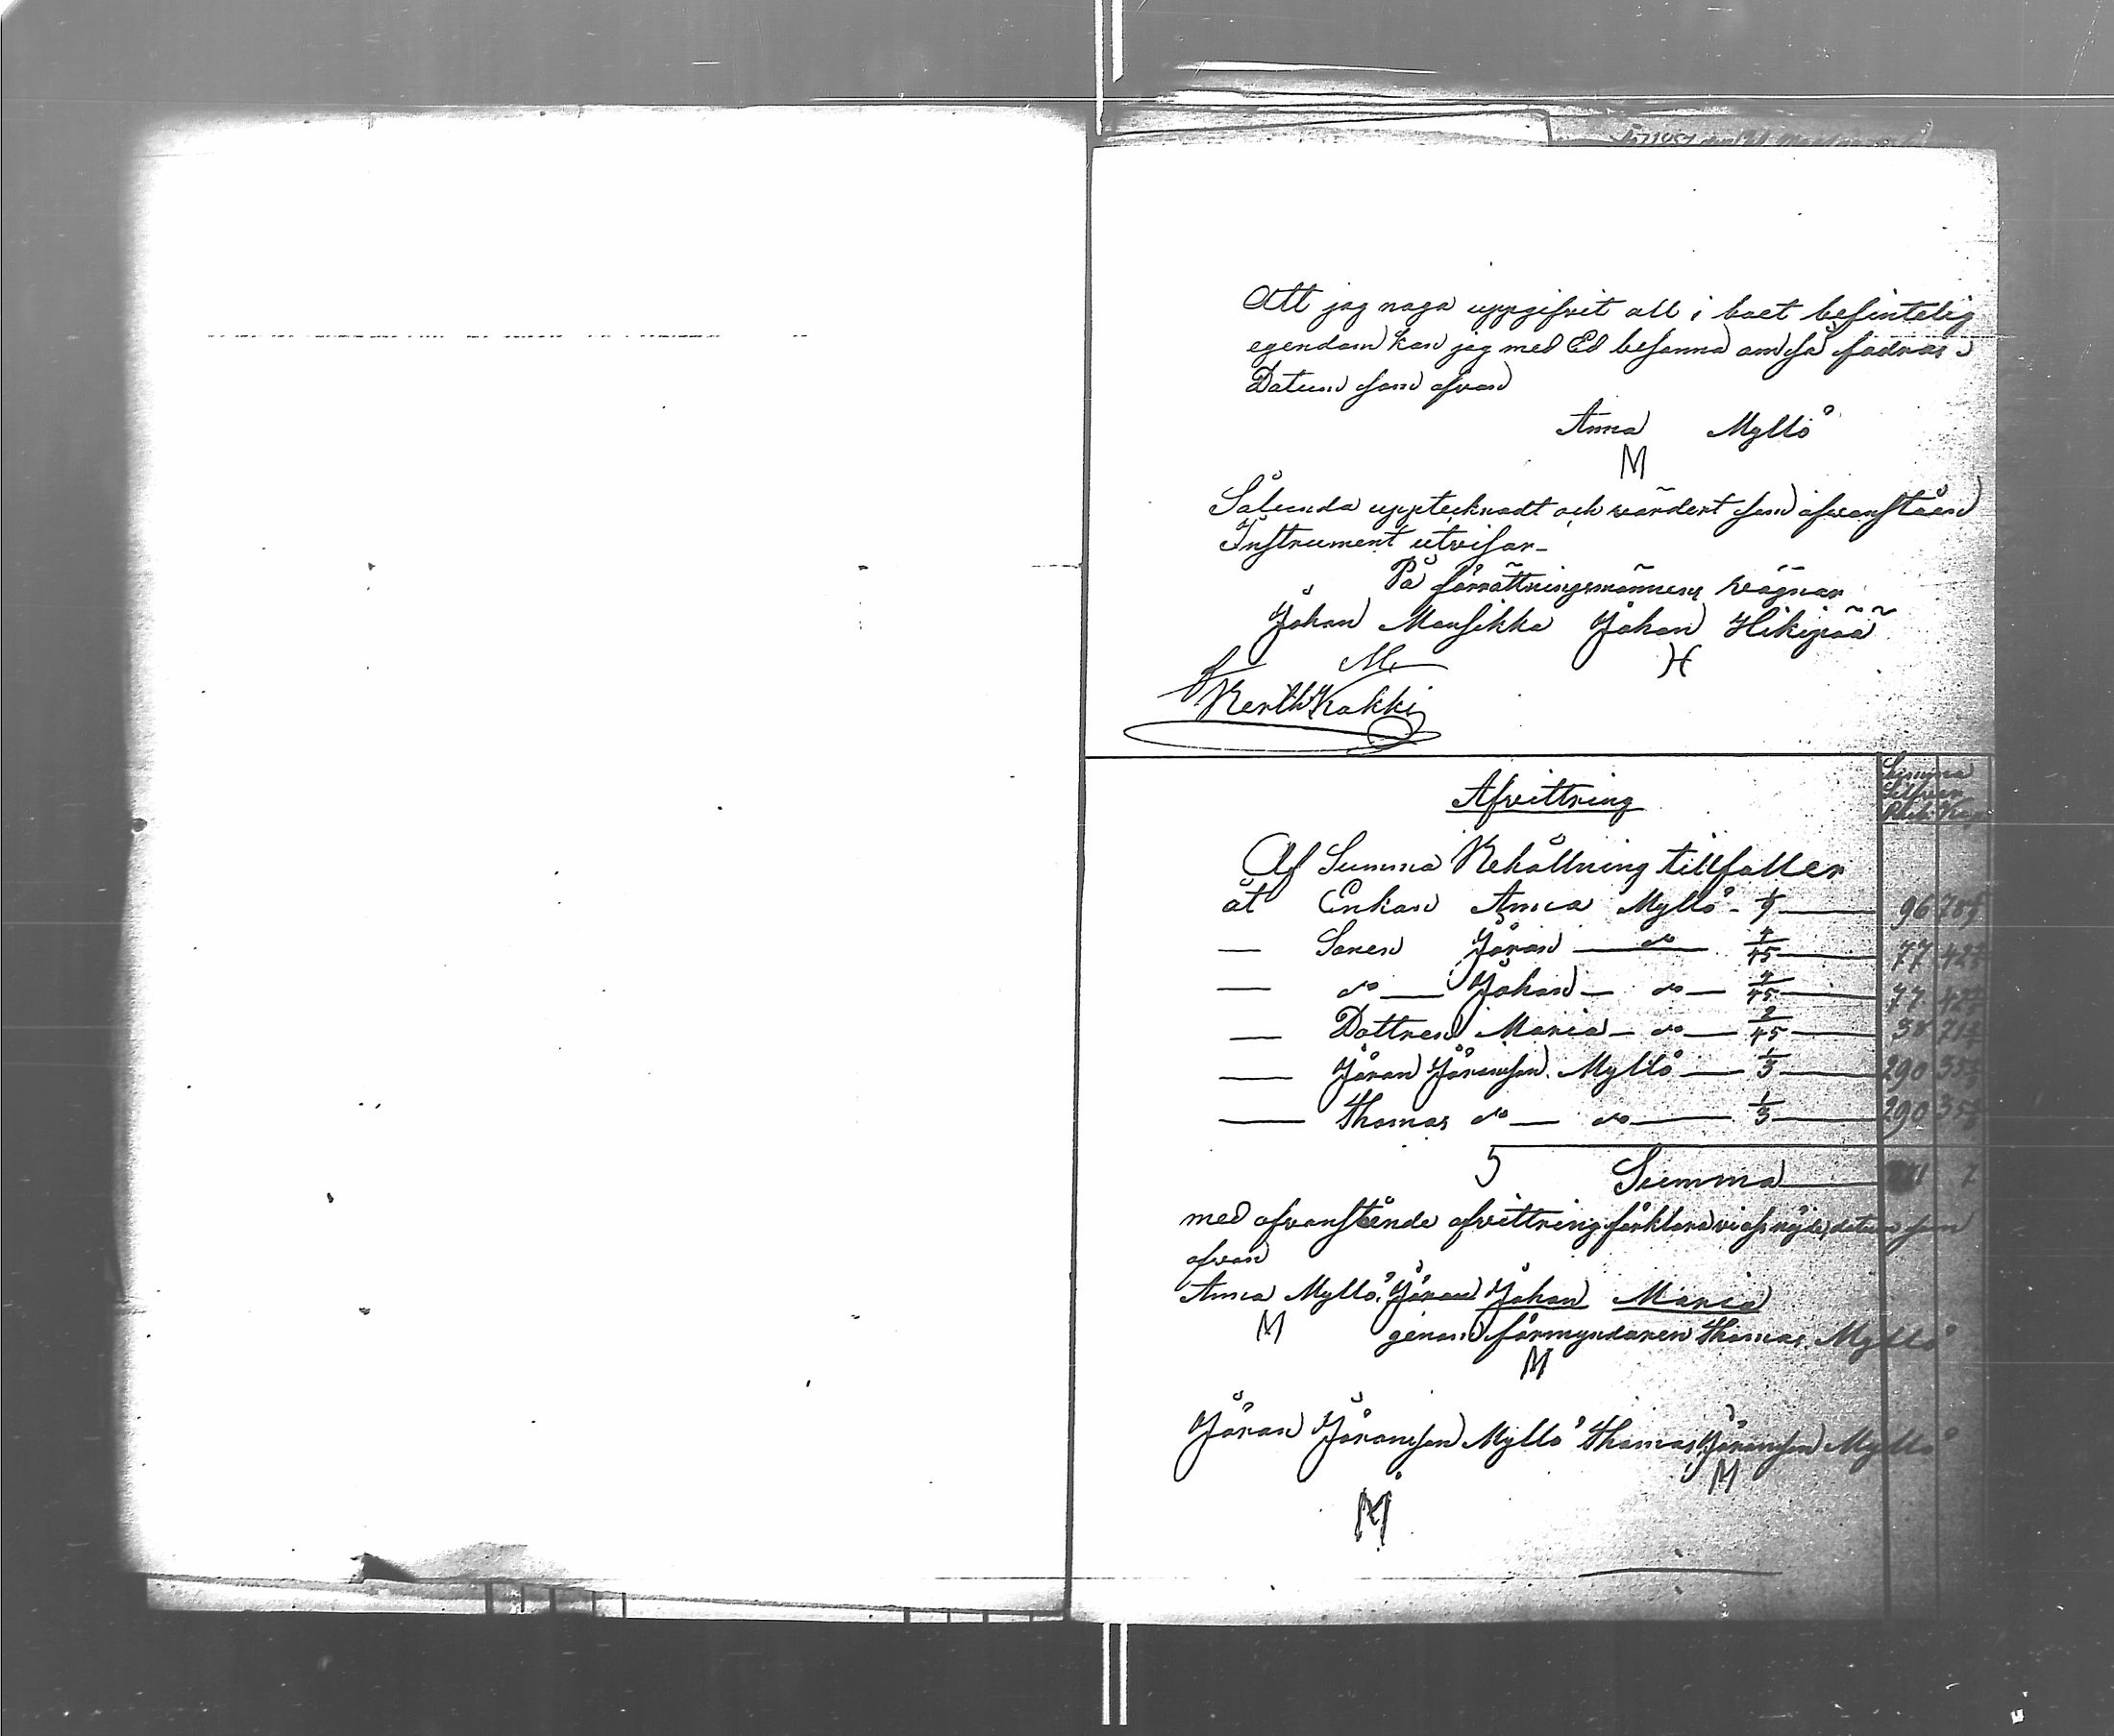 Att jag noga uppgifvit all i boet befintelig
egendom kan jag med Ed besanna om så fodras
Datum som ofvan
Anna Myllö
M
Sålunda upptecknadt och värdert som ofvanstående
Instrument utvisar
På förrättningsmännens vägnar
Johan Mansikka Johan Hikipää
M H
Kerttu Kakki
Afvittring
Summa
Silfver
Rub. Kop
Af Summa Behållning tillfaller
åt Enkan Anna Myllö 1/9 96
— Sonen Jöran — do — 4/45 77 42
— do — Johan — do — 4/45 77 42
— Dottren Maria — do — 2/45 38 71
— Jöran Jöransson Myllö — 1/3 290 35
— Thomas do — do — 1/3 290 35
Summa 7
med ofvanstående afvittring förklara vi oss nöjde, datum som
ofvan
Anna Myllö, Jöran Johan Maria
M genom förmyndaren Thomas Myllö
M
Jöran Jöransson Myllö Thomas Jöransson Myllö
M
M